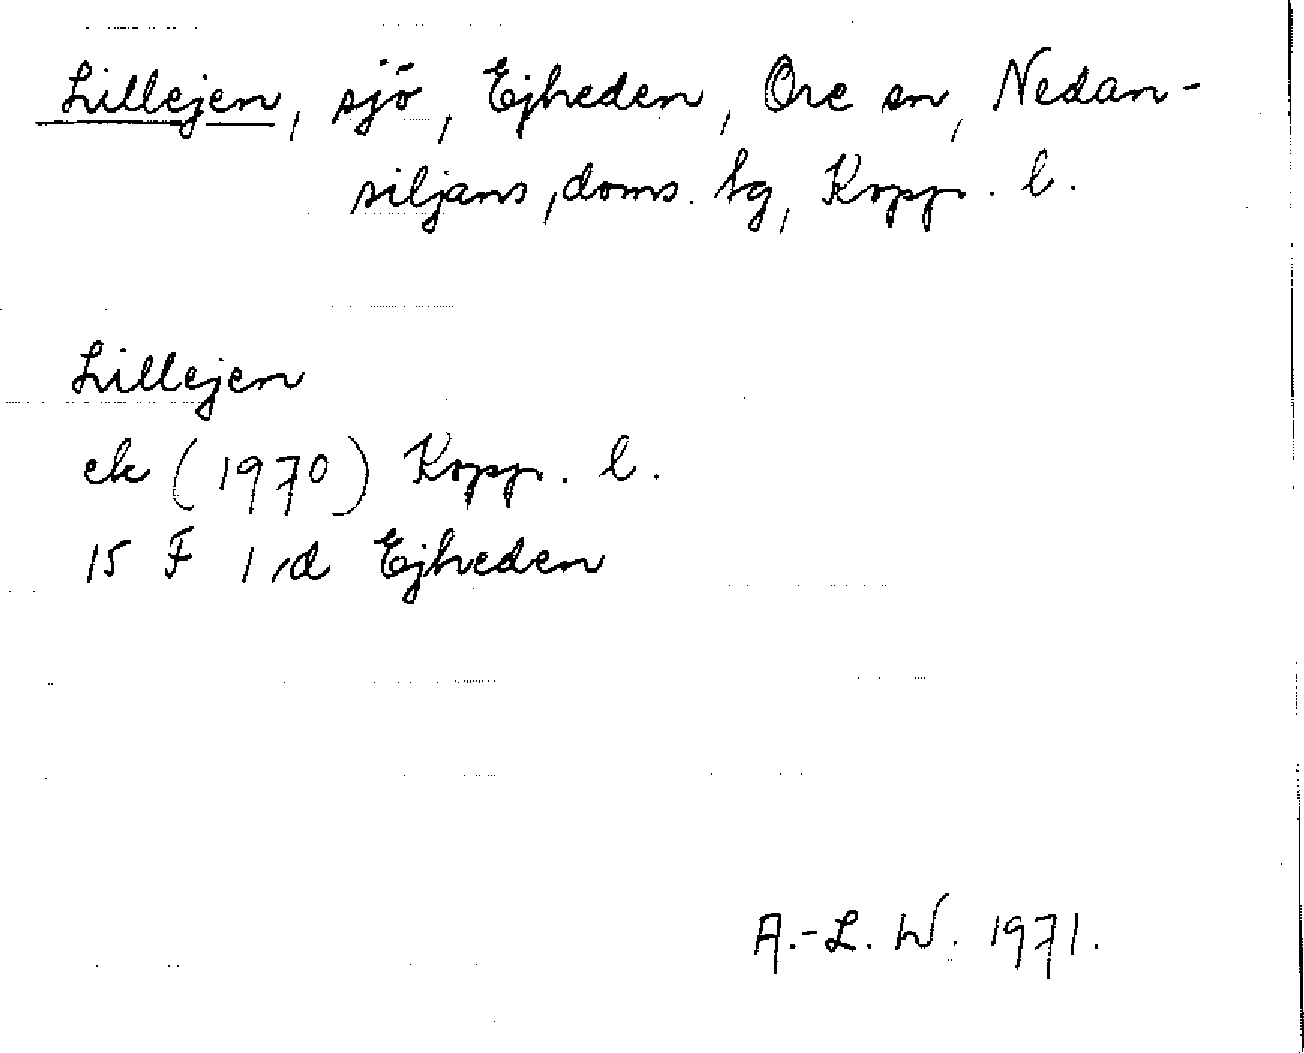 Lillejen, sjö, Ejheden, Ore sn, Nedan-
siljans, doms. tg, Kopp. l.
Lillejen
ek (1970) Kopp. l.
15 F 1 d Ejheden
A.-L. W. 1971.